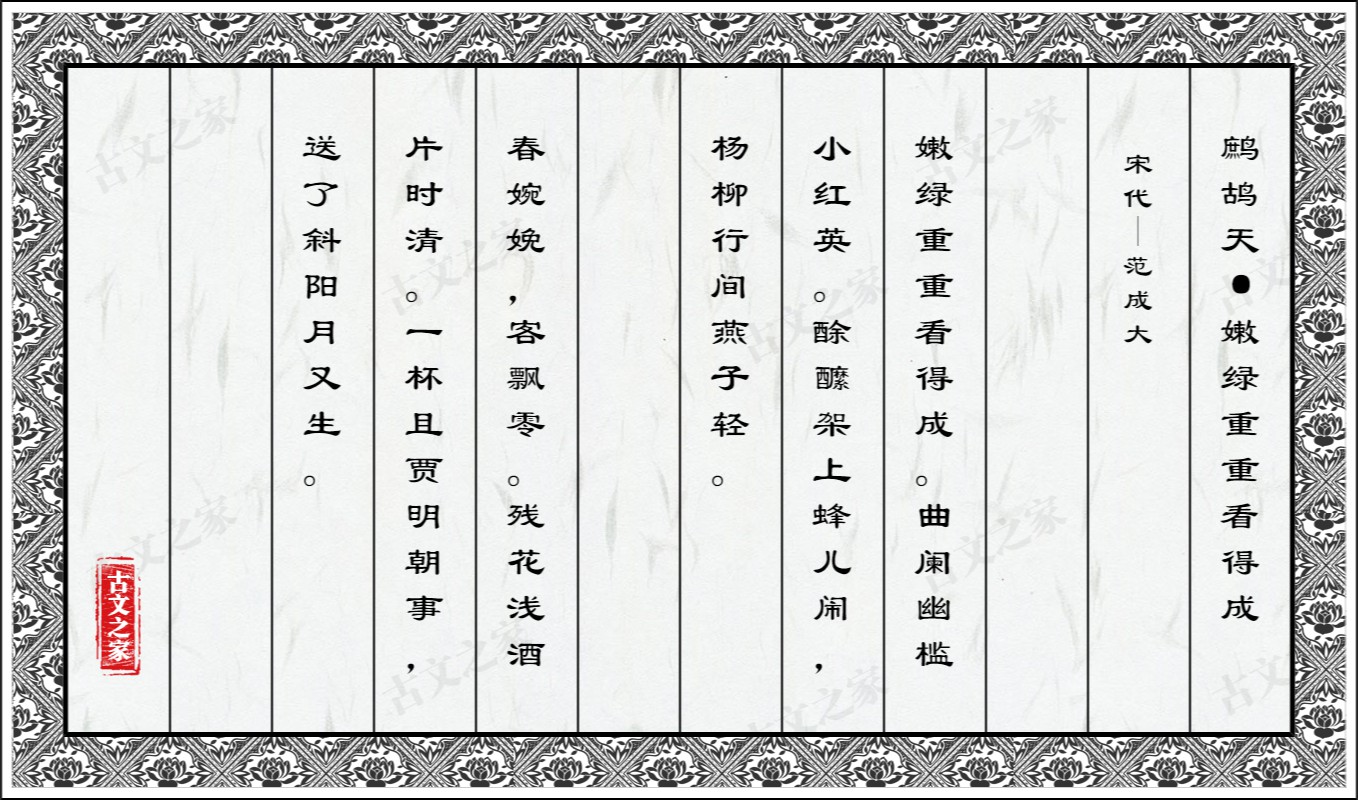 鹧鸪天●嫩绿重重看得成
宋代—范成大
嫩绿重重看得成。曲阑幽槛
小红英。酴醾架上蜂儿闹，
杨柳行间燕子轻。
春婉娩，客飘零。残花浅酒
片时清。一杯且贾明朝事，
送了斜阳月又生。
古文之家